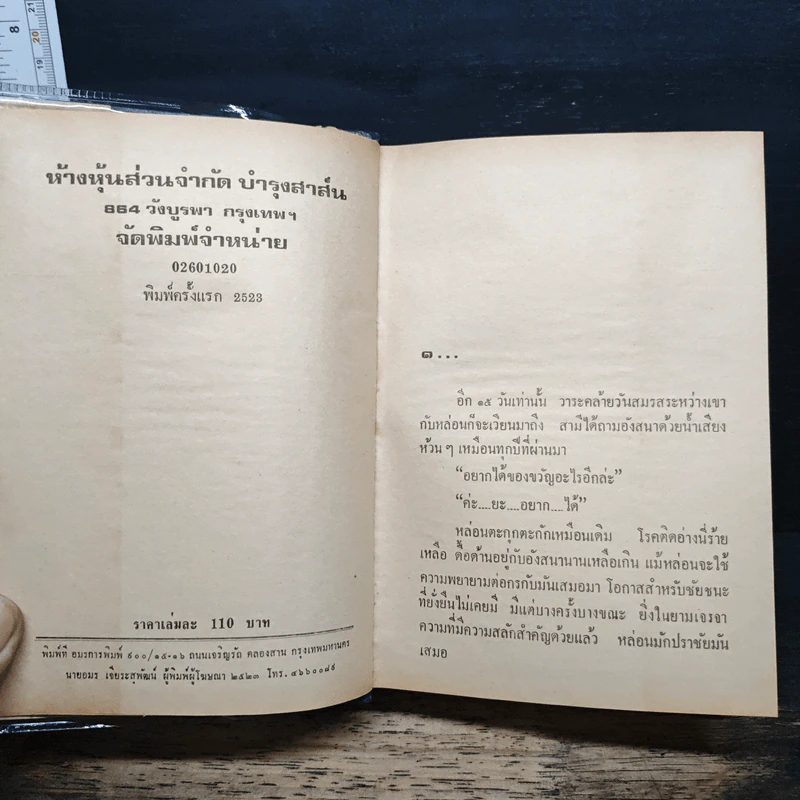 ห้างหุ้นส่วนจำกัด บำรุงสาส์น
864 วังบูรพา กรุงเทพฯ
จัดพิมพ์จำหน่าย
02601020
พิมพ์ครั้งแรก 2523
ราคาเล่มละ 110 บาท
พิมพ์ที่ อมรการพิมพ์ ๙๐๐/๑๕-๑๖ ถนนเจริญรัถ คลองสาน กรุงเทพมหานคร
นายอมร เจียระสุพัฒน์ ผู้พิมพ์ผู้โฆษณา ๒๕๒๓ โทร. ๔๖๖๐๐๘๙
๑...
อีก ๑๕ วันเท่านั้น วาระคล้ายวันสมรสระหว่างเขา
กับหล่อนก็จะเวียนมาถึง สามีได้ถามอังสนาด้วยน้ำเสียง
ห้วน ๆ เหมือนทุกปีที่ผ่านมา
“อยากได้ของขวัญอะไรอีกล่ะ”
“ค่ะ....ยะ....อยาก....ได้”
หล่อนตะกุกตะกักเหมือนเดิม โรคติดอ่างนี่ร้าย
เหลือ ดื้อด้านอยู่กับอังสนานานเหลือเกิน แม้หล่อนจะใช้
ความพยายามต่อกรกับมันเสมอมา โอกาสสำหรับชัยชนะ
ที่ยั่งยืนไม่เคยมี มีแต่บางครั้งบางขณะ ยิ่งในยามเจรจา
ความที่มีความสลักสำคัญด้วยแล้ว หล่อนมักปราชัยมัน
เสมอ
8
21
20
19